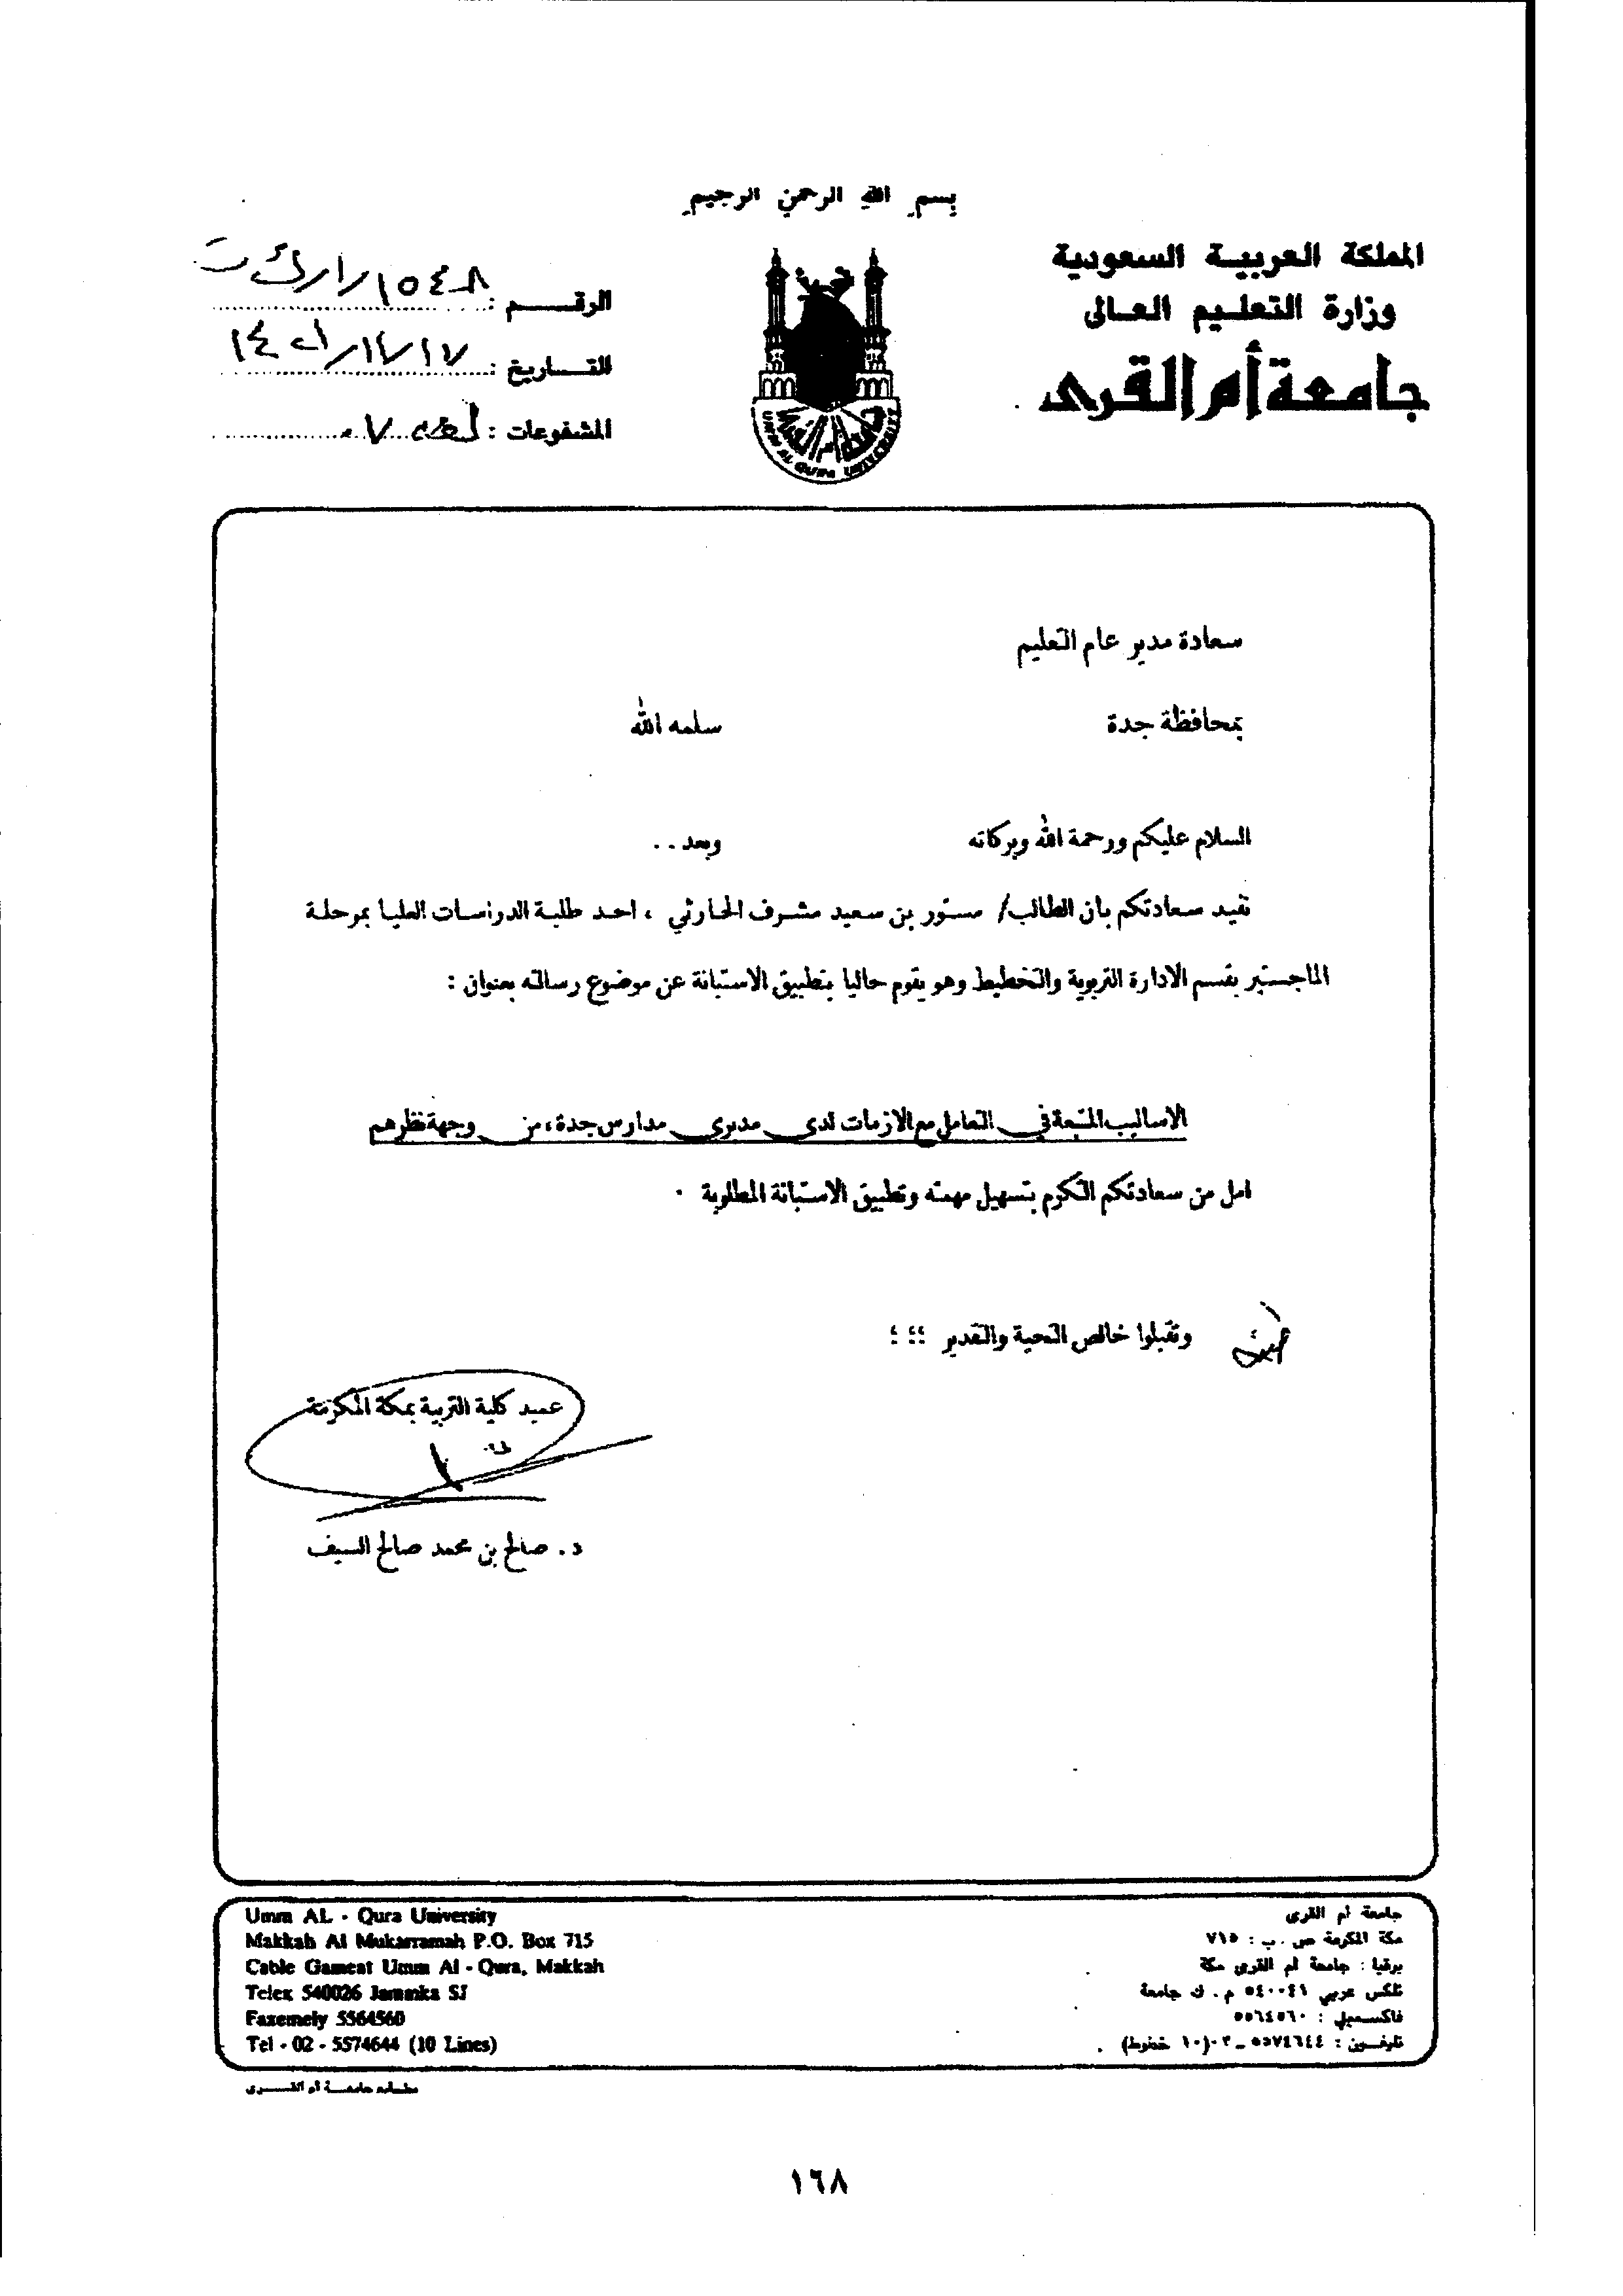 بسم الله الرحمن الرحيم
المملكة العربية السعودية
وزارة التعليم العالى
جامعة أم القرى
الرقم :
التاريخ : ١٧/١٢/١٤٢١
المشفوعات :
UMM AL QURA UNIVERSITY
سعادة مدير عام التعليم
بمحافظة جدة سلمه الله
السلام عليكم ورحمة الله وبركاته وبعد . .
نفيد سعادتكم بان الطالب/ مستور بن سعيد مشرف الحارثي ، احد طلبة الدراسات العليا بمرحلة
الماجستير بقسم الادارة التربوية والتخطيط وهو يقوم حاليا بتطبيق الاستبانة عن موضوع رسالته بعنوان :
الاساليب المتبعة في التعامل مع الازمات لدى مديرى مدارس جدة ، من وجهة نظرهم
امل من سعادتكم التكرم بتسهيل مهمته وتطبيق الاستبانة المطلوبة .
وتقبلوا خالص التحية والتقدير ؛؛ ؛
عميد كلية التربية بمكة المكرمة
د . صالح بن محمد صالح السيف
Umm AL - Qura University
Makkah Al Mukarramah P.O. Box 715
Cable Gameat Umm Al - Qura, Makkah
Telex 540026 Jammka SJ
Faxemely 5564560
Tel - 02 - 5574644 (10 Lines)
جامعة أم القرى
مكة المكرمة ص . ب : ٧١٥
برقيا : جامعة أم القرى مكة
تلكس عربي ٥٤٠٠٤١ م . ك جامعة
فاكسميلي : ٥٥٦٤٥٦٠
تليفون : ٥٥٧٤٦٤٤ - ٠٢ (١٠ خطوط)
مطابع جامعة أم القرى
١٦٨